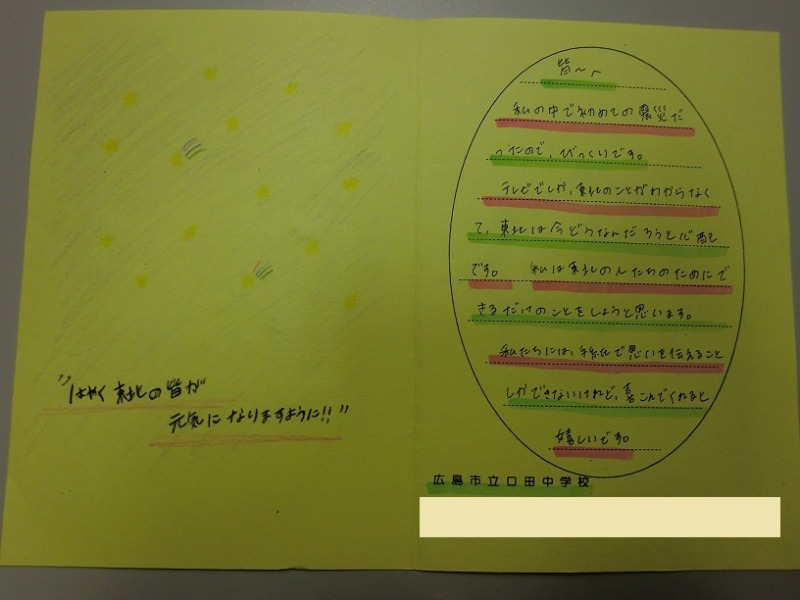 "はやく東北の皆が
元気になりますように!!"
皆へ
私の中で初めての震災だ
ったので、びっくりです。
テレビでしか、東北のことがわからなく
て、東北は今どうなんだろうと心配
です。 私は東北の人たちのためにで
きるだけのことをしようと思います。
私たちには、手紙で思いを伝えること
しかできないけれど、喜こんでくれると
嬉しいです。
広島市立口田中学校